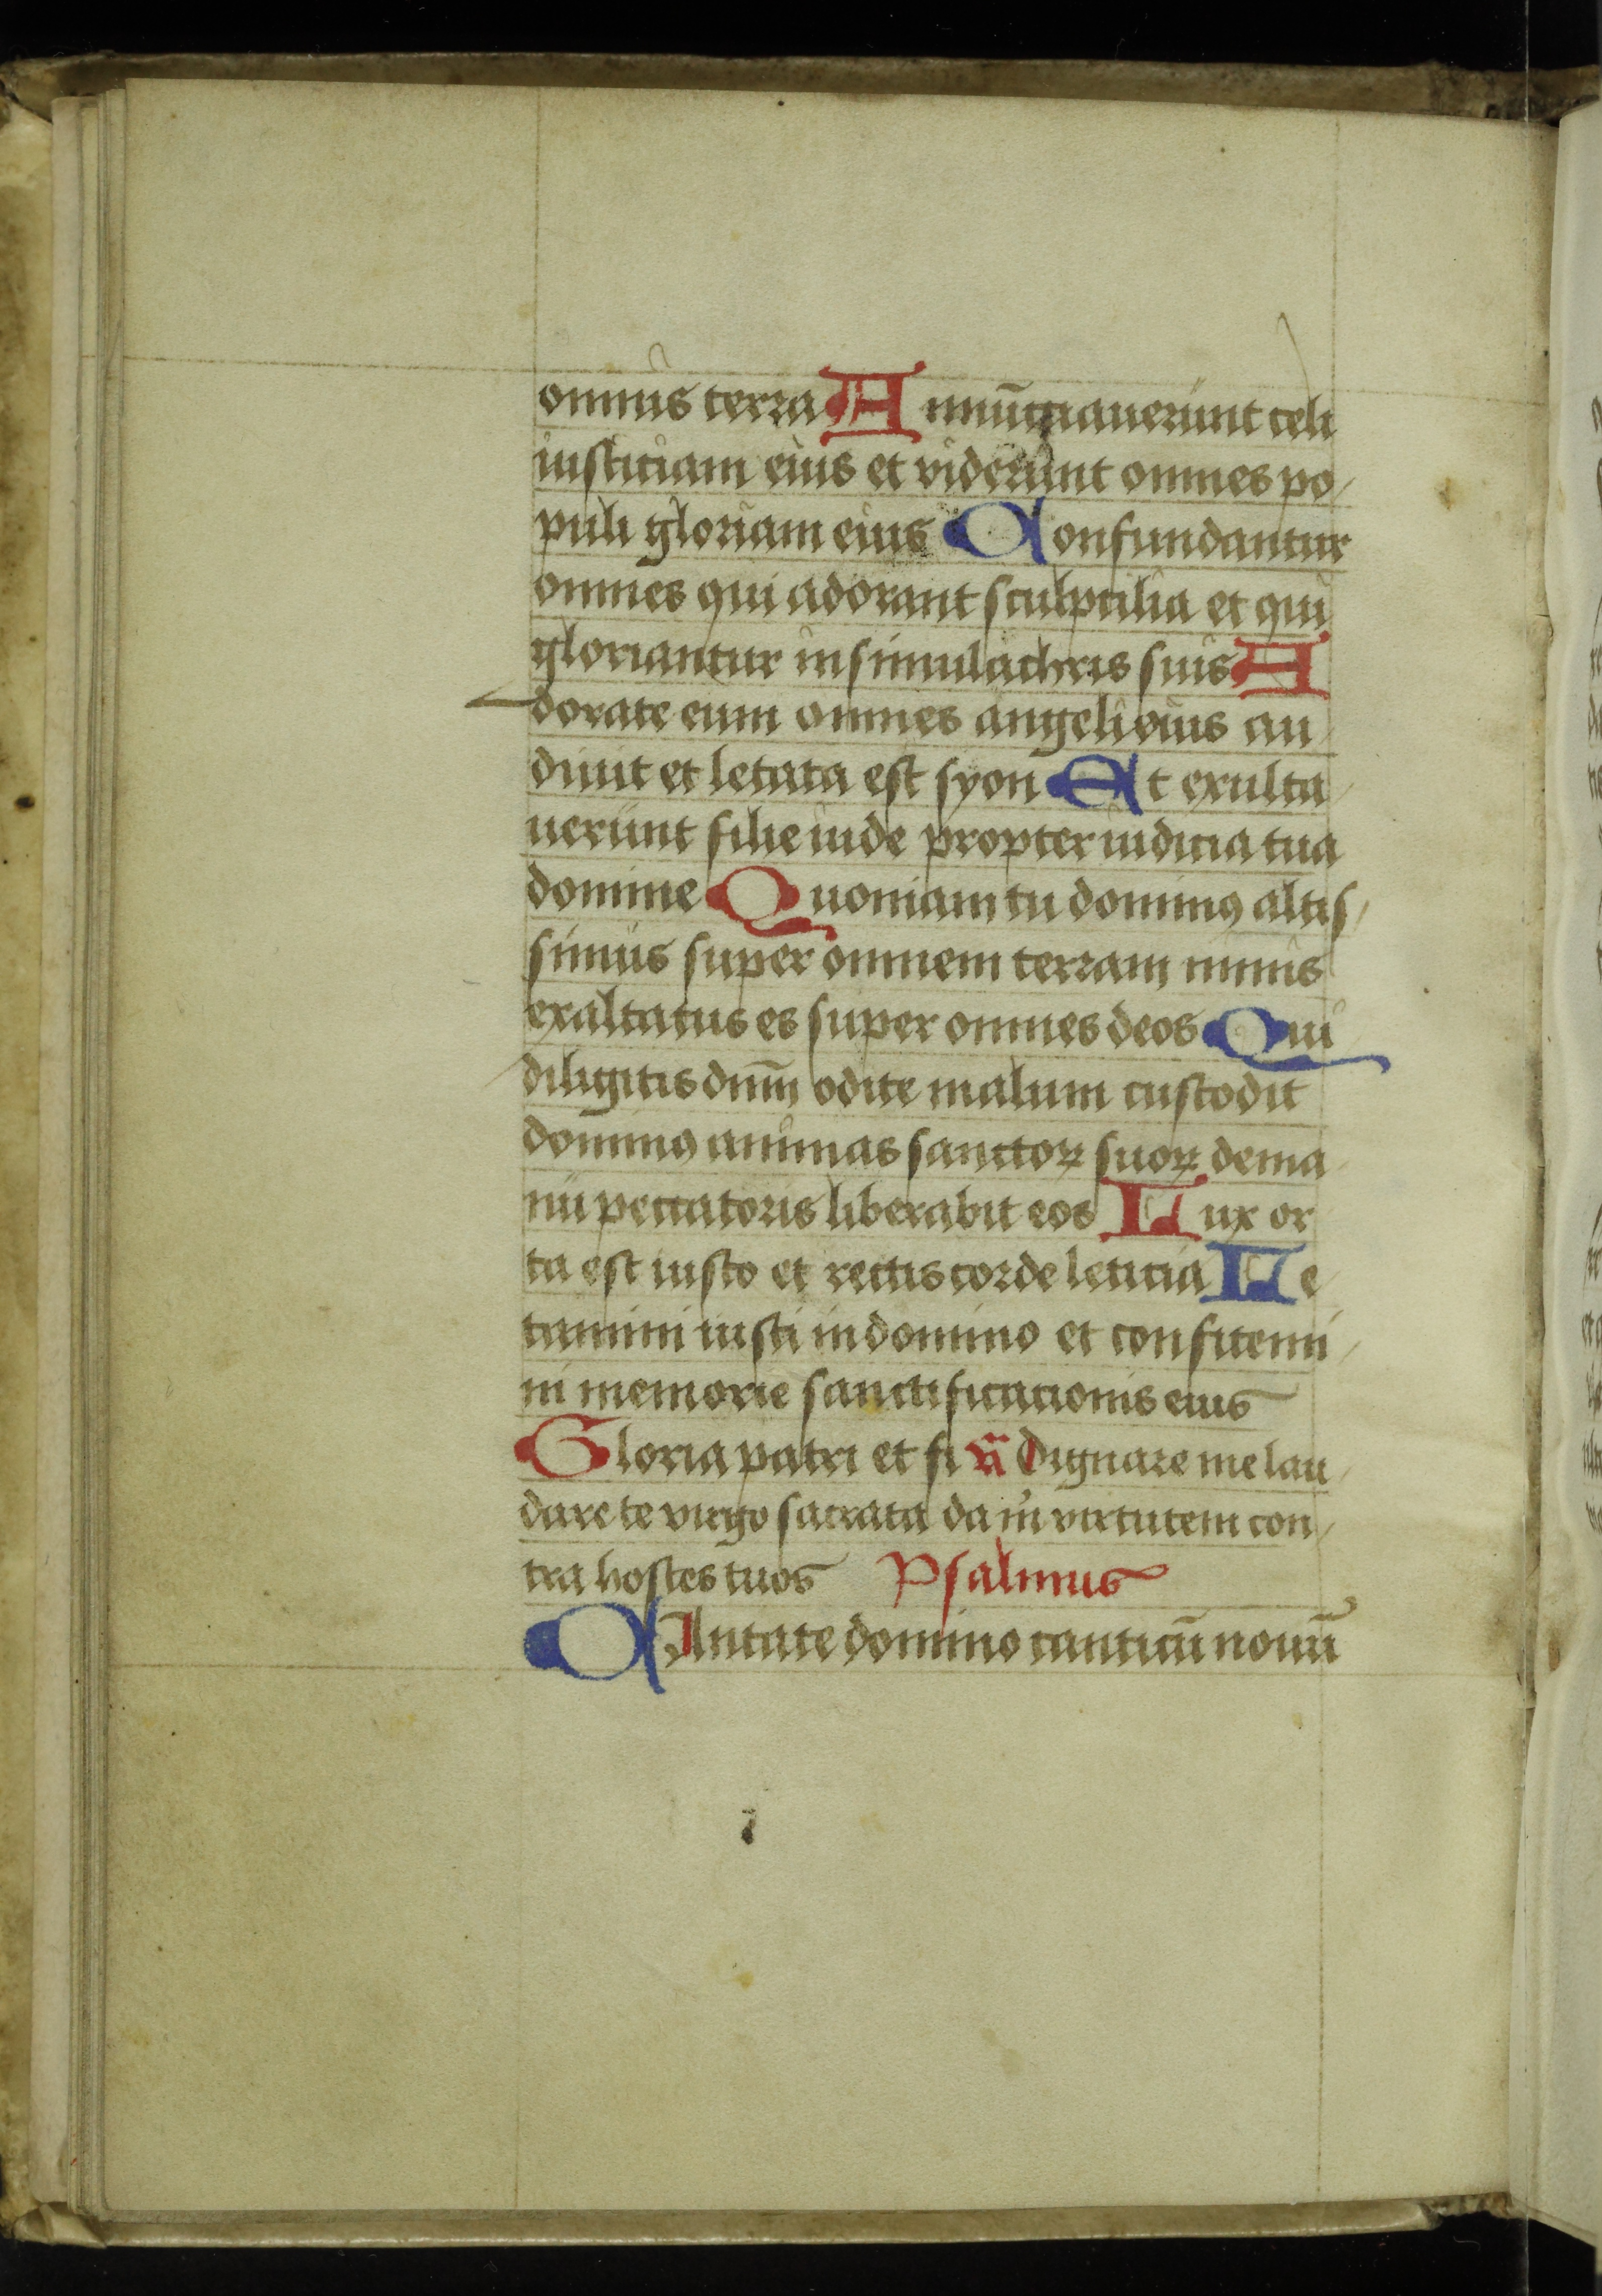 omnis terra Annūtiauerunt celi
iusticiam eius et viderunt omnes po/
puli gloriam eius Confundantur
omnes qui adorant sculptilia et qui
gloriantur in simulachris suis A
dorate eum omnes angeli eius au/
diuit et letata est syon Et exulta/
uerunt filie iude propter iudicia tua
domine Quoniam tu dominꝰ altis/
simus super omnem terram nimis
exaltatus es super omnes deos Qui
diligitis dnm̄ odite malum custodit
dominꝰ animas sanctoꝝ suoꝝ de ma/
nu peccatoris liberabit eos Lux or
ta est iusto et rectis corde leticia Le/
tamini iusti in domino et confitemi/
ni memorie sanctificationis eius
Gloria patri et fi añ Dignare me lau/
dare te virgo sacrata da m̄ virtutem con/
tra hostes tuos Psalmus
CAntate domino canticū nouū